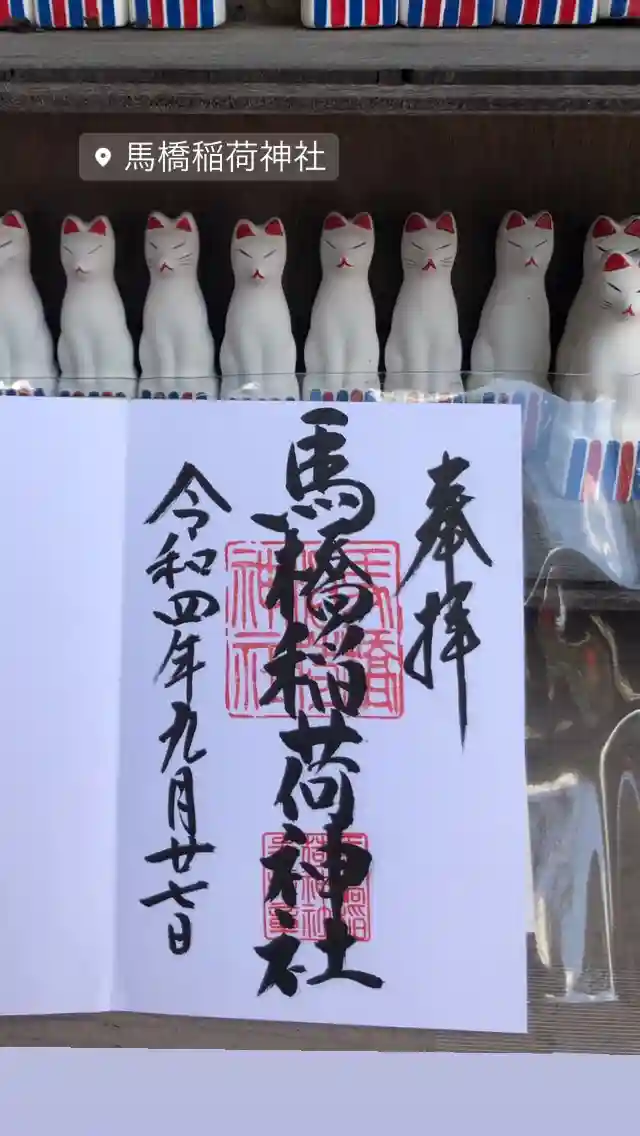 馬橋稲荷神社
奉拝
馬橋稲荷神社
馬橋稲荷神社
令和四年九月廿七日